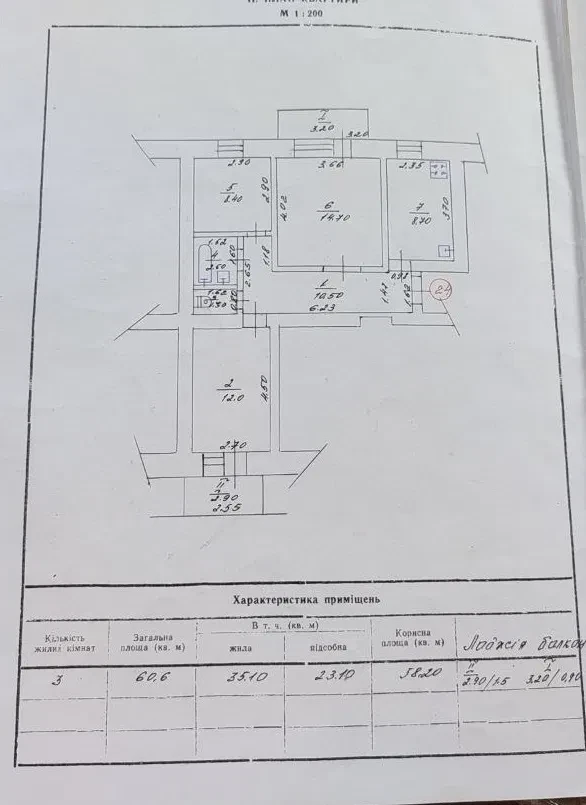 М 1 : 200
I
3.20
3.20
2.90
3.66
2.35
5
8.40
2.90
4.02
6
14.70
7
8.70
3.70
1.62
4
2.60
1.60
2.65
1.18
1
10.50
6.23
0.98
1.42
1.62
24
1.62
3
1.30
0.80
2
12.0
4.50
2.70
II
2.90
2.55
Характеристика приміщень
Кількість жилих кімнат
Загальна площа (кв. м)
В т. ч. (кв. м)
жила
підсобна
Корисна площа (кв. м)
Лоджія балкон
3
60,6
35.10
23.10
58.20
II
2.90/1.5
I
3.20/0,90